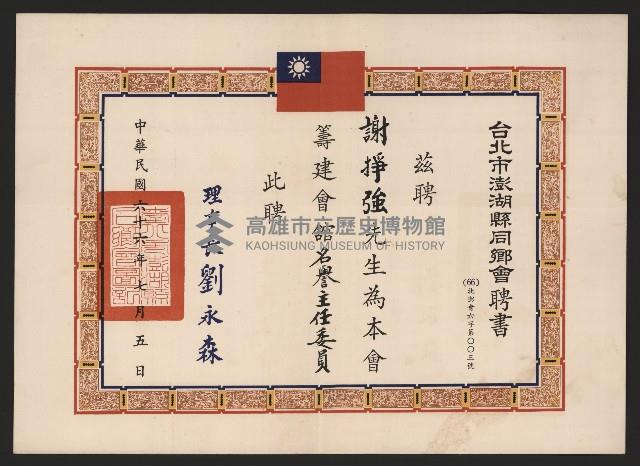 台北市澎湖縣同鄉會聘書
(66)北澎會六字第〇〇三號
茲聘
謝掙強先生為本會
籌建會館名譽主任委員
此聘
理事長劉永森
中華民國六十六年七月五日
高雄市立歷史博物館
KAOHSIUNG MUSEUM OF HISTORY